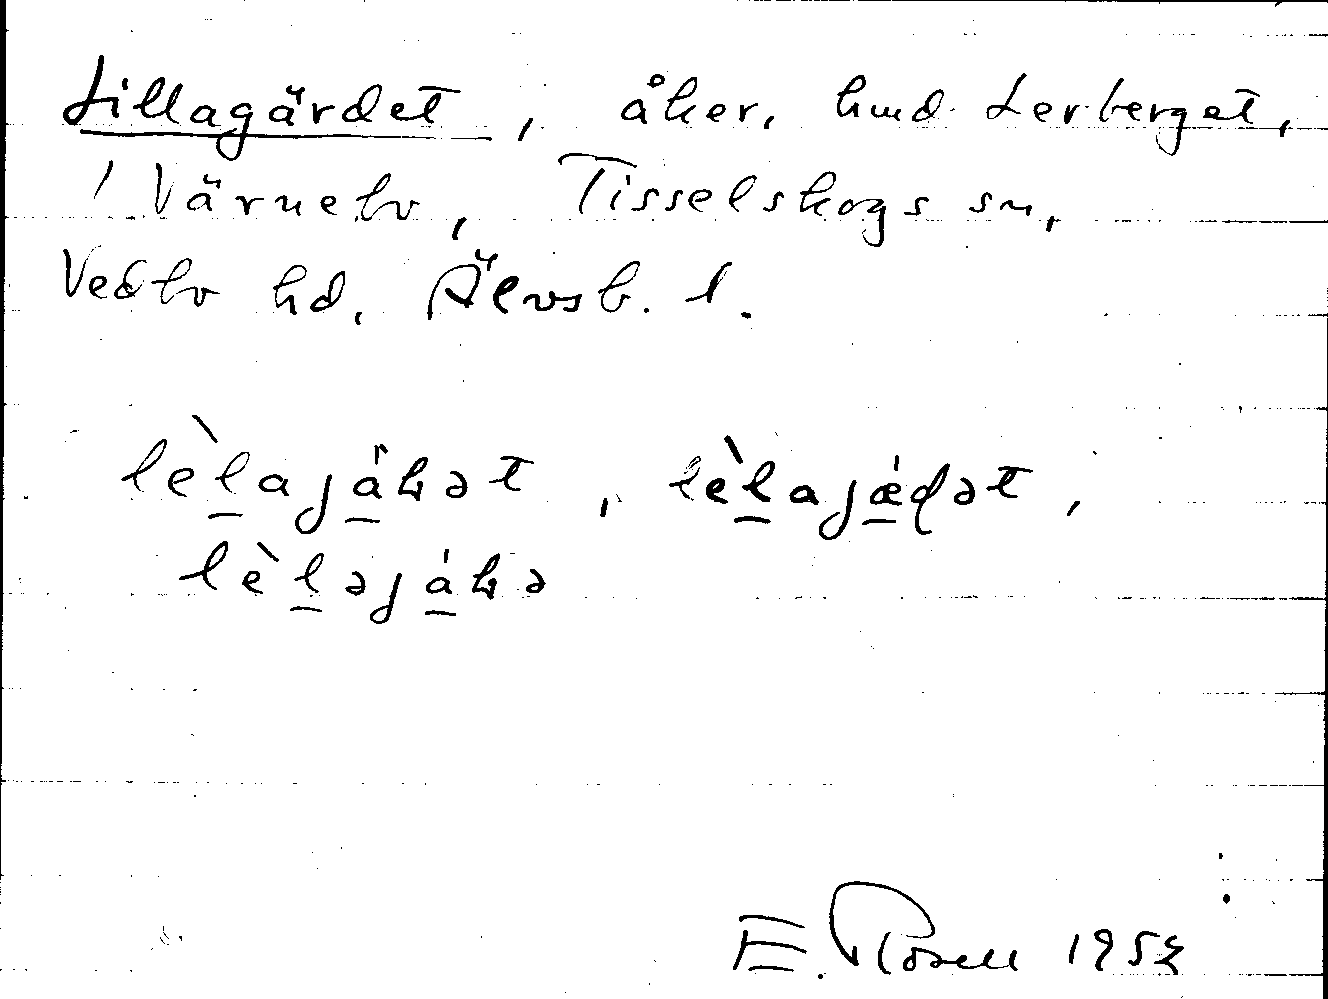 Lillagärdet, åker, hmd. Lerberget,
1 Värnebo, Tisselskogs sn,
Vedbo hd, Älvsb. l.
lèlajáɫət, lèlajǽḍət,
lèləjáɫə
E. Rosell 195